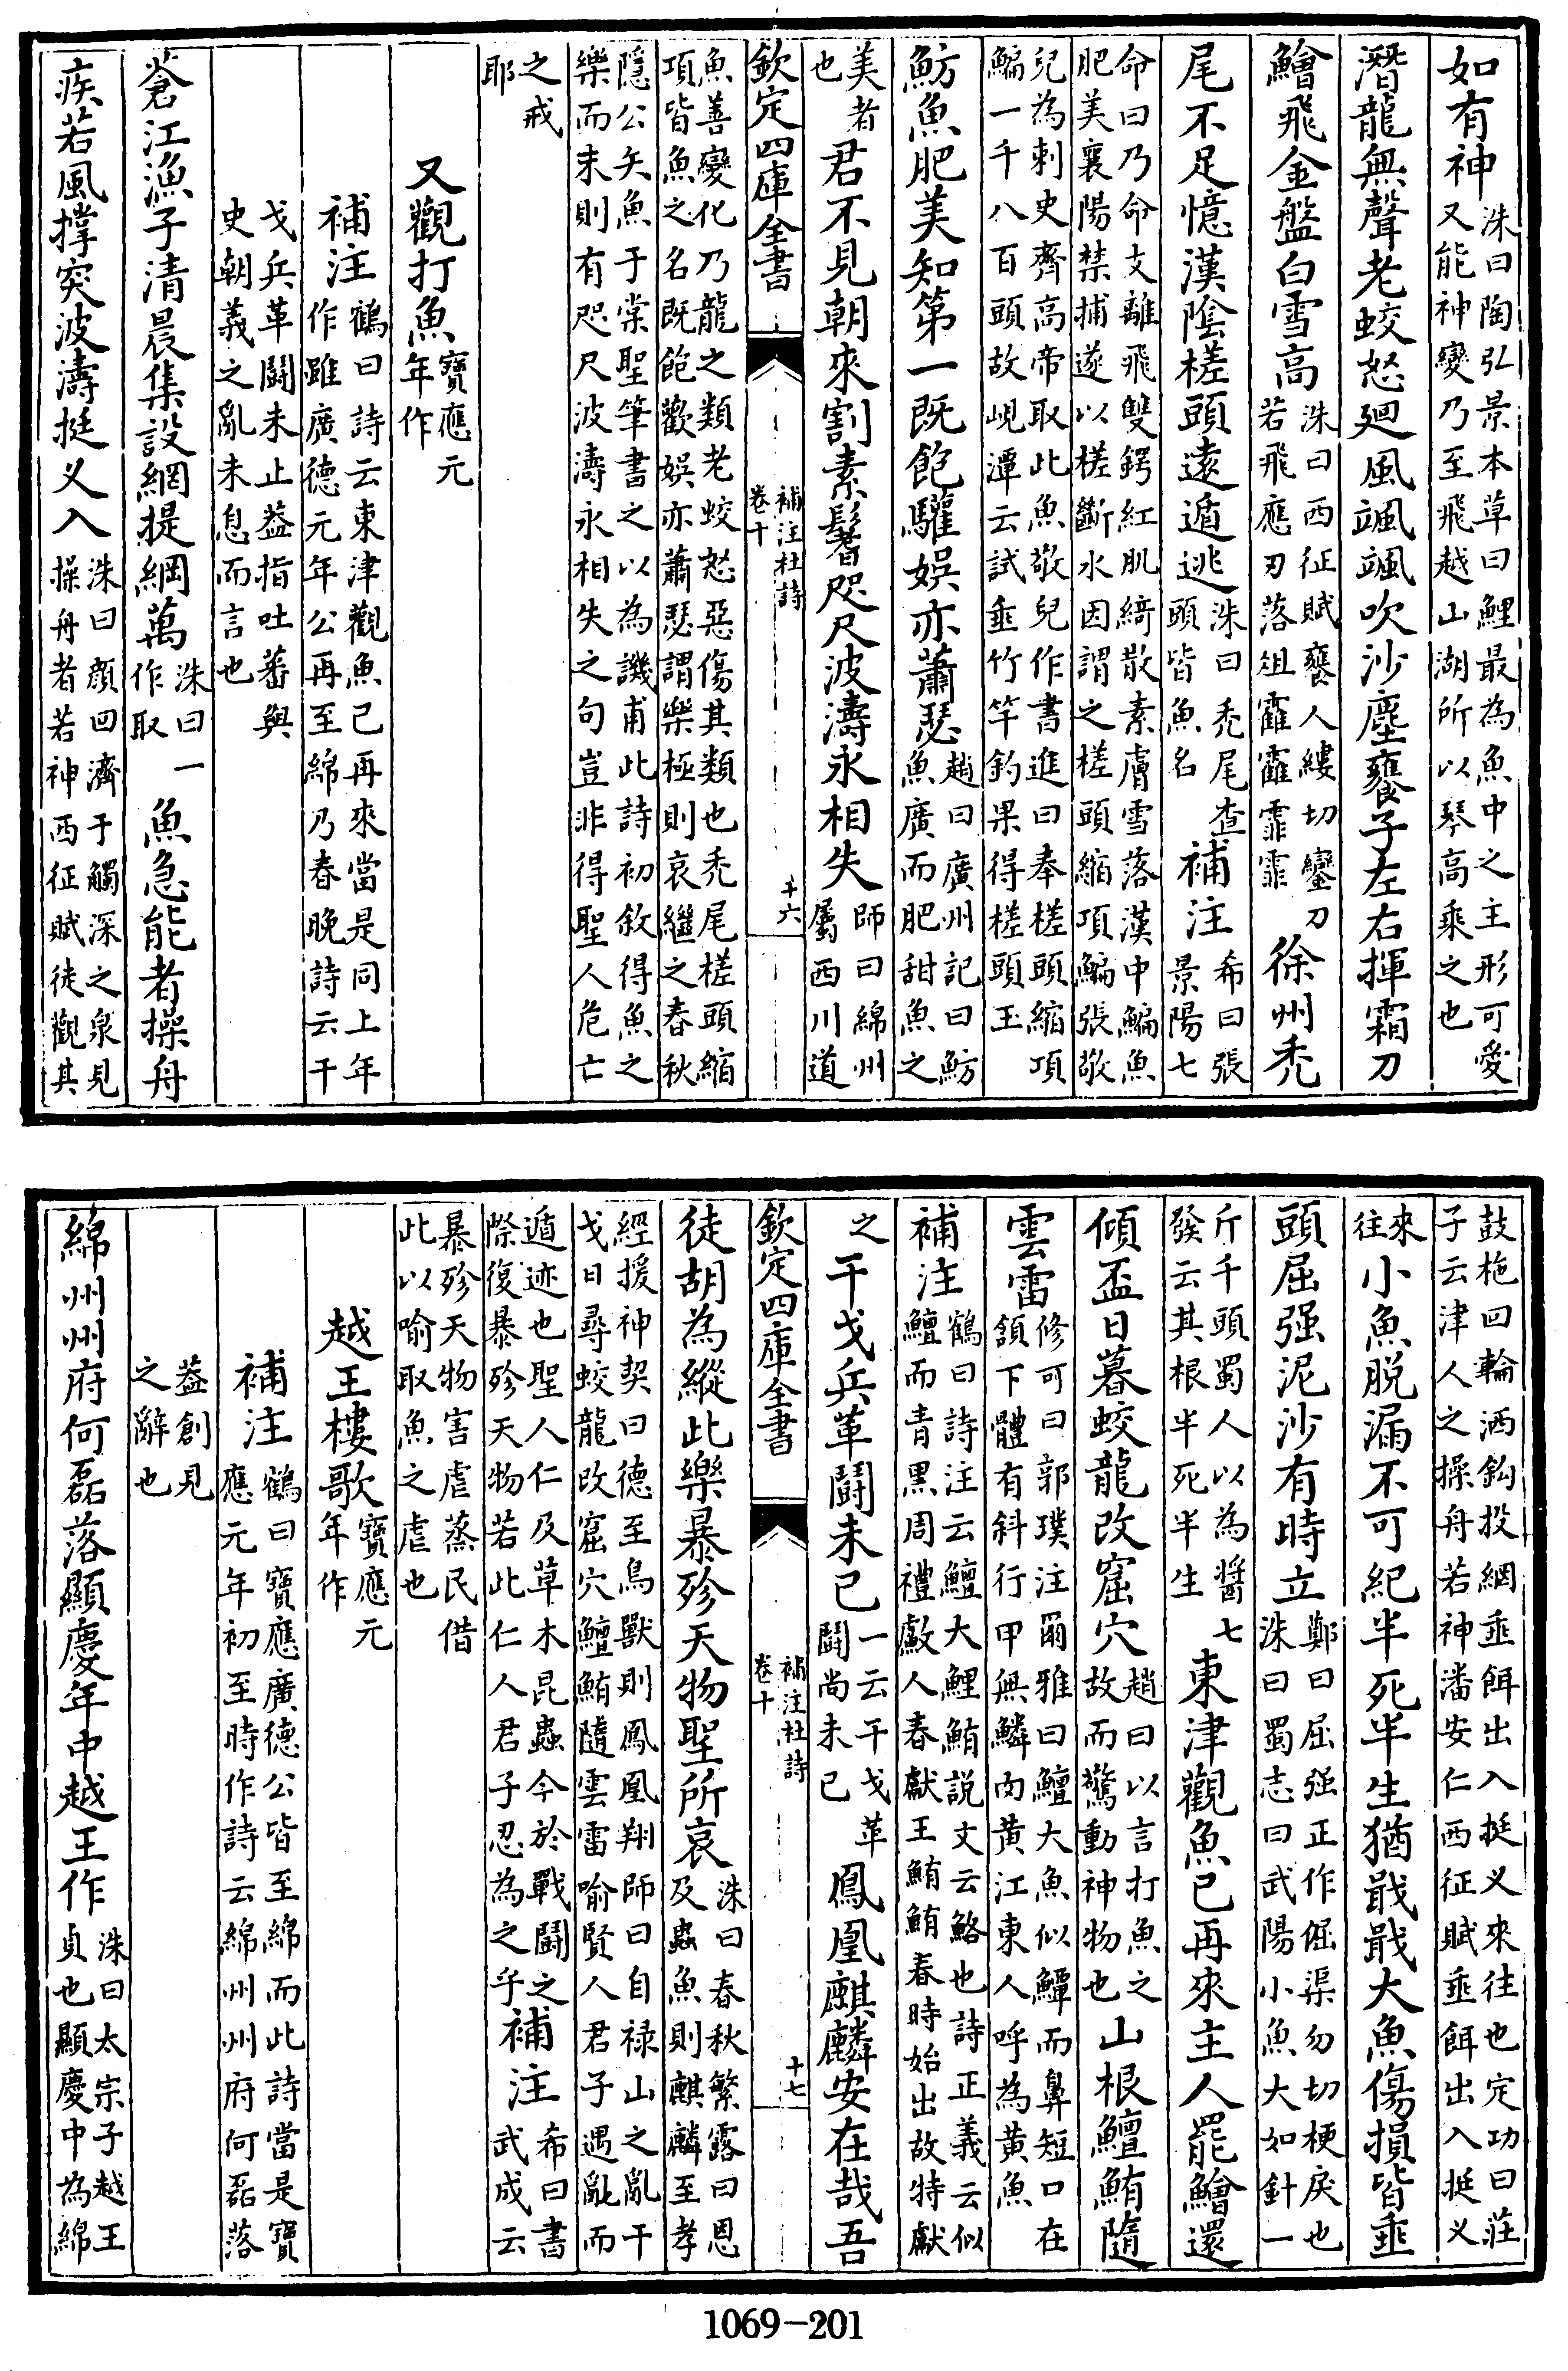 如有神洙曰陶弘景本草曰鯉最為魚中之主形可愛又能神變乃至飛越山湖所以琴高乘之也
潛龍無聲老蛟怒廻風颯颯吹沙塵饔子左右揮霜刀
鱠飛金盤白雪高洙曰西征賦饔人縷切鑾刀若飛應刃落俎霍霍霏霏徐州禿
尾不足憶漢陰槎頭遠遁逃洙曰禿尾查頭皆魚名補注希曰張景陽七
命曰乃命支離飛雙鍔紅肌綺散素膚雪落漢中鯿魚肥美襄陽禁捕遂以槎斷水因謂之槎頭縮項鯿張敬
兒為刺史齊高帝取此魚敬兒作書進曰奉槎頭縮項鯿一千八百頭故峴潭云試垂竹竿釣果得槎頭玉
魴魚肥美知第一既飽驩娛亦蕭瑟趙曰廣州記曰魴魚廣而肥甜魚之
美者也君不見朝來割素鬐咫尺波濤永相失師曰綿州屬西川道
欽定四庫全書 補注杜詩卷十 十六
魚善變化乃龍之類老蛟怒惡傷其類也禿尾槎頭縮項皆魚之名既飽歡娛亦蕭瑟謂樂極則哀繼之春秋
隱公矢魚于棠聖筆書之以為譏甫此詩初敘得魚之樂而末則有咫尺波濤永相失之句豈非得聖人危亡
之戒耶
又觀打魚寶應元年作
補注鶴曰詩云東津觀魚已再來當是同上年作雖廣德元年公再至綿乃春晚詩云干
戈兵革鬬未止葢指吐蕃與史朝義之亂未息而言也
蒼江漁子清晨集設網提綱萬洙曰一作取魚急能者操舟
疾若風撐突波濤挺义入洙曰顔囘濟于觴深之泉見操舟者若神西征賦徒觀其
鼓枻囘輪洒鈎投網垂餌出入挺义來往也定功曰莊子云津人之操舟若神潘安仁西征賦垂餌出入挺义
來往小魚脱漏不可紀半死半生猶戢戢大魚傷損皆垂
頭屈强泥沙有時立鄭曰屈强正作倔渠勿切梗戾也洙曰蜀志曰武陽小魚大如針一
斤千頭蜀人以為醬七發云其根半死半生東津觀魚已再來主人罷鱠還
傾盃日暮蛟龍改窟穴趙曰以言打魚之故而驚動神物也山根鱣鮪隨
雲雷修可曰郭璞注爾雅曰鱣大魚似鱏而鼻短口在頷下體有斜行甲無鱗肉黄江東人呼為黄魚
補注鶴曰詩注云鱣大鯉鮪説文云鮥也詩正義云似鱣而青黑周禮䱷人春獻王鮪鮪春時始出故特獻
之干戈兵革鬬未已一云干戈革鬬尚未已鳳凰麒麟安在哉吾
欽定四庫全書 補注杜詩卷十 十七
徒胡為縱此樂暴殄天物聖所哀洙曰春秋繁露曰恩及蟲魚則麒麟至孝
經援神契曰德至鳥獸則鳳凰翔師曰自禄山之亂干戈日尋蛟龍改窟穴鱣鮪隨雲雷喻賢人君子遇亂而
遁迹也聖人仁及草木昆蟲今於戰鬬之際復暴殄天物若此仁人君子忍為之乎補注希曰書武成云
暴殄天物害虐蒸民借此以喻取魚之虐也
越王樓歌寶應元年作
補注鶴曰寶應廣德公皆至綿而此詩當是寶應元年初至時作詩云綿州州府何磊落
葢創見之辭也
綿州州府何磊落顯慶年中越王作洙曰太宗子越王貞也顯慶中為綿
1069-201